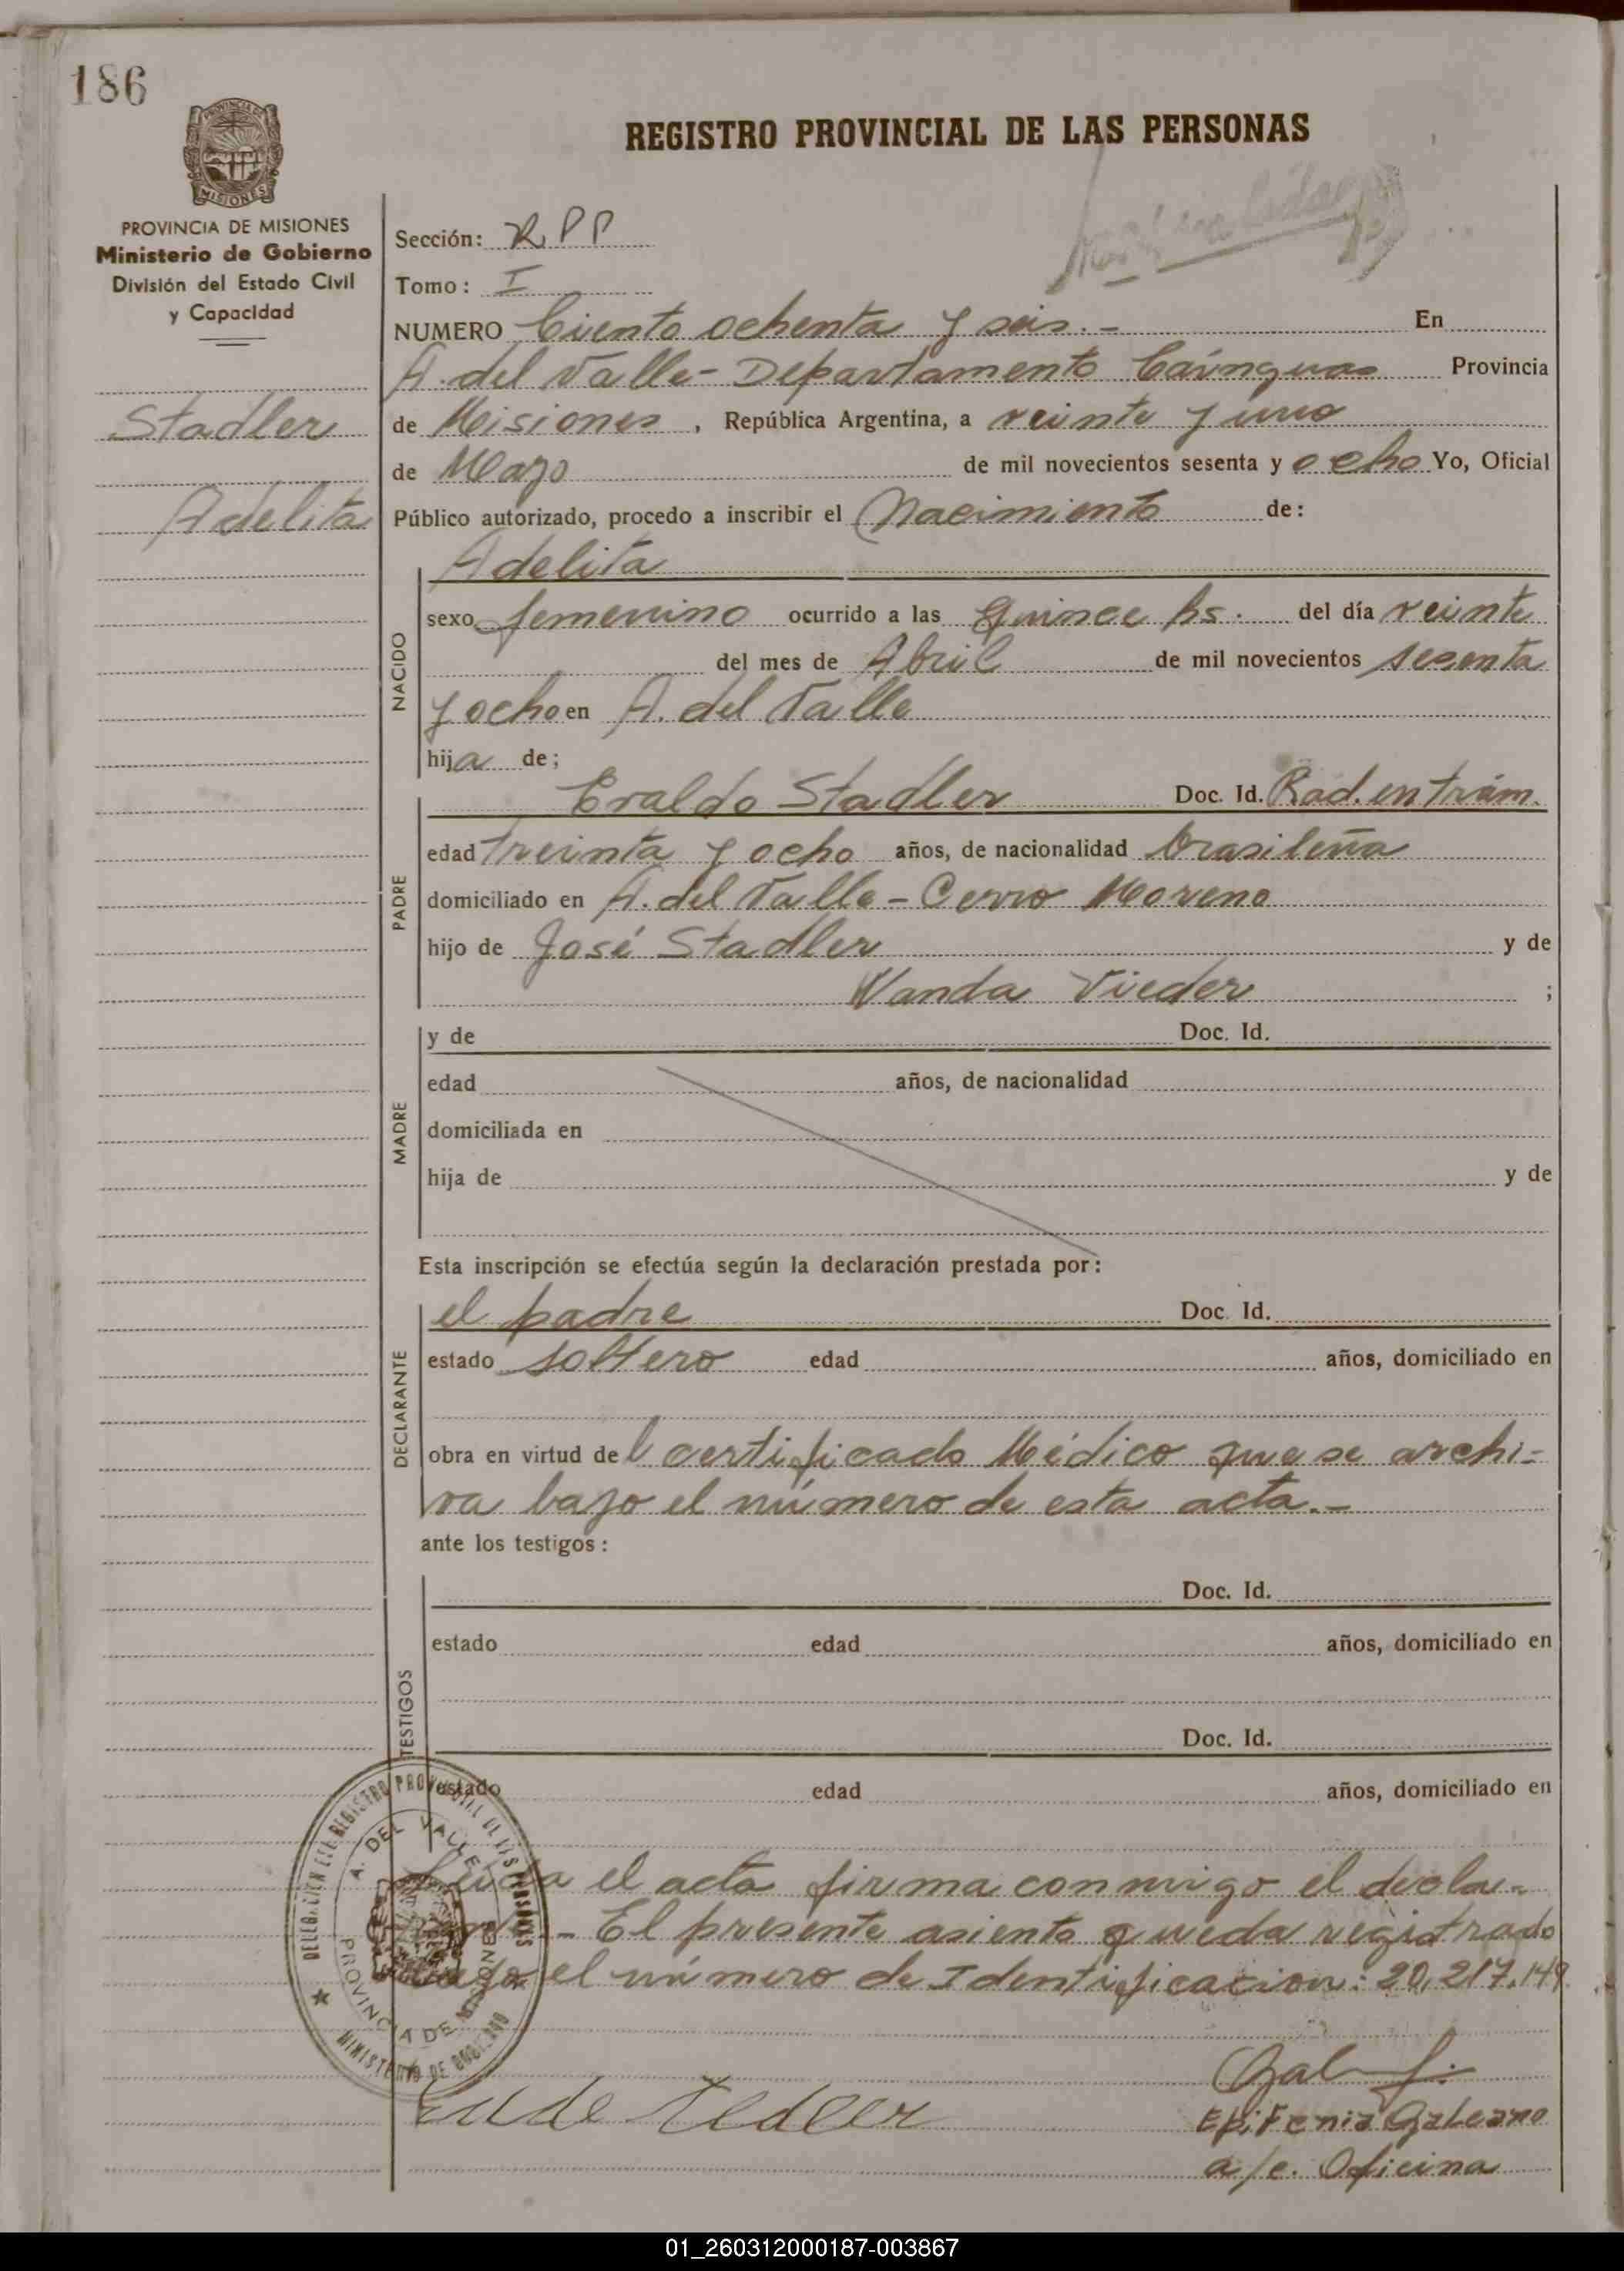 186
REGISTRO PROVINCIAL DE LAS PERSONAS
PROVINCIA DE
MISIONES
PROVINCIA DE MISIONES
Ministerio de Gobierno
División del Estado Civil
y Capacidad
Stadler
Adelita
Sección: R P P
Tomo: I
NUMERO Ciento ochenta y seis.- En
A. del Valle- Departamento Cáinguas Provincia
de Misiones, República Argentina, a veinte y uno
de Mayo de mil novecientos sesenta y ocho Yo, Oficial
Público autorizado, procedo a inscribir el Nacimiento de:
NACIDO
Adelita
sexo femenino ocurrido a las quince hs. del día veinte
del mes de Abril de mil novecientos sesenta
y ocho en A. del Valle
hija de;
PADRE
Eraldo Stadler Doc. Id. Rad. en trám.
edad treinta y ocho años, de nacionalidad brasileña
domiciliado en A. del Valle - Cerro Moreno
hijo de José Stadler y de
Wanda Vieder ;
MADRE
y de Doc. Id.
edad años, de nacionalidad
domiciliada en
hija de y de
Esta inscripción se efectúa según la declaración prestada por:
DECLARANTE
el padre Doc. Id.
estado soltero edad años, domiciliado en
obra en virtud del certificado Médico que se archi-
va bajo el número de esta acta.-
ante los testigos:
TESTIGOS
Doc. Id.
estado edad años, domiciliado en
Doc. Id.
estado edad años, domiciliado en
Leída el acta firma conmigo el decla-
- El presente asiento queda registrado
bajo el número de Identificacion: 20,217.149.
DELEGACION DEL REGISTRO PROVINCIAL DE LAS PERSONAS
A. DEL VALLE
PROVINCIA DE MISIONES
MINISTERIO DE GOBIERNO
Epifenia Galeano
a/c. Oficina
01_260312000187-003867